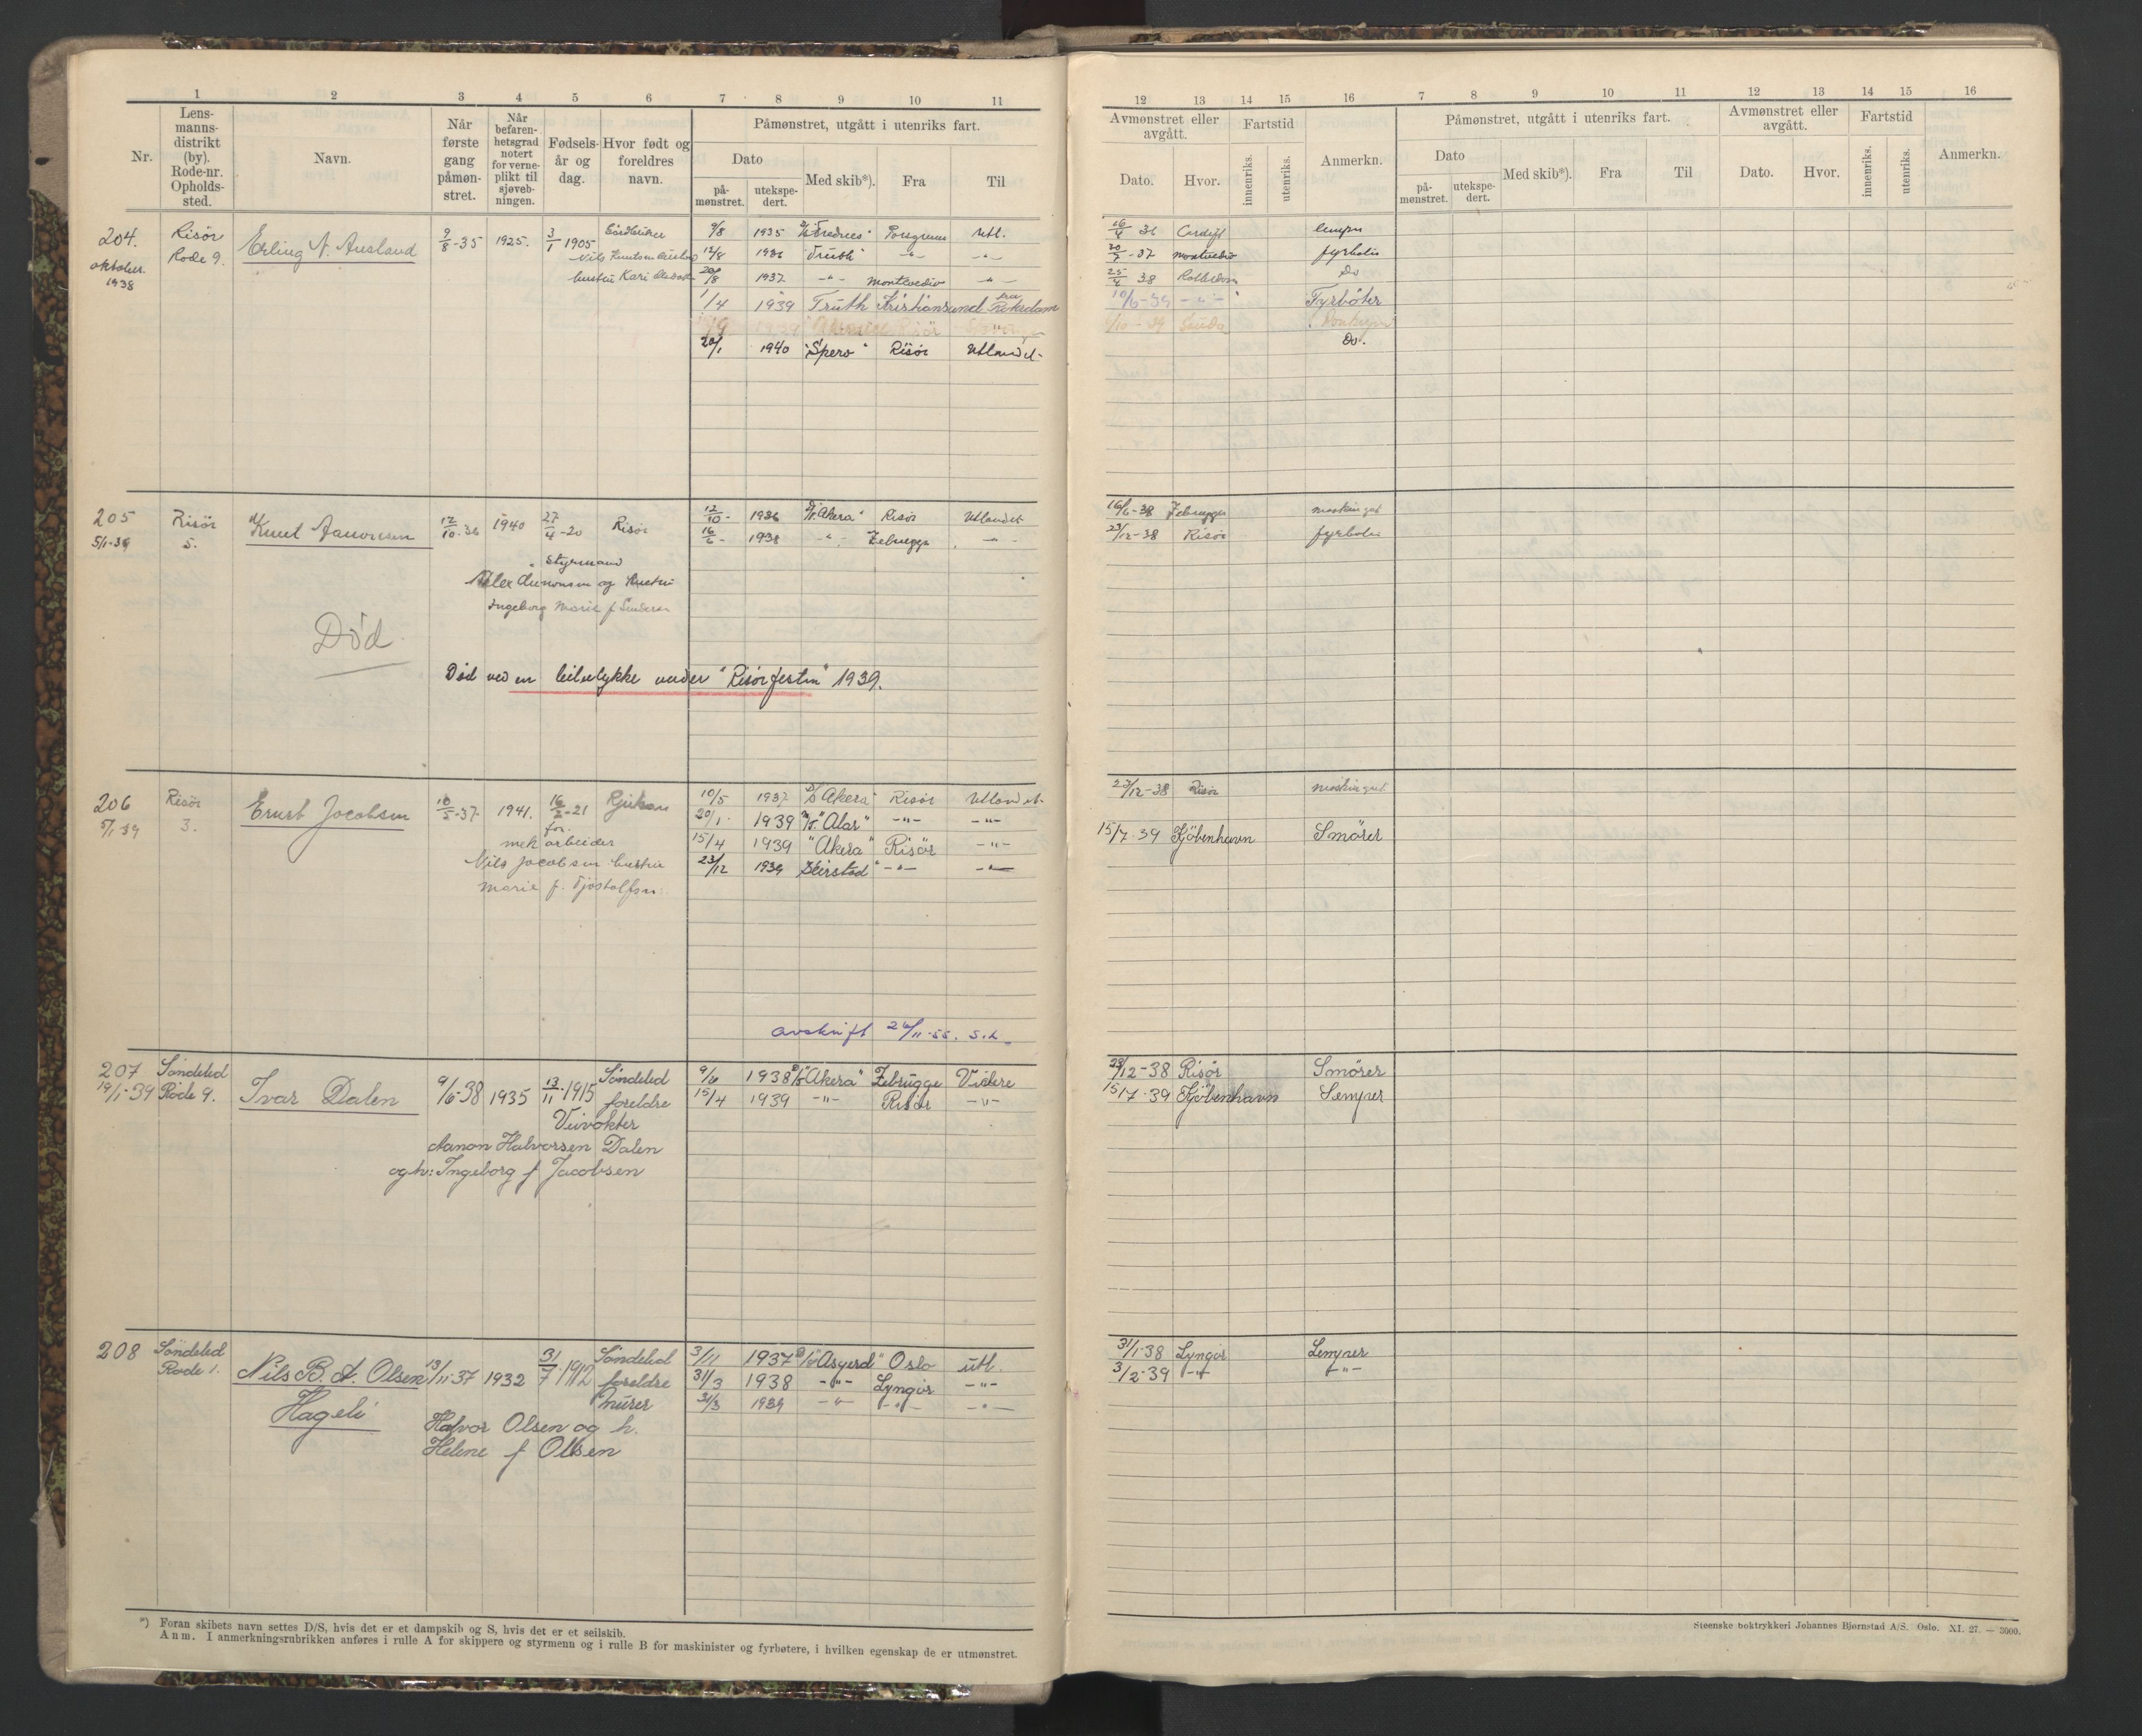 1 2 3 4 5 6 7 8 9 10 11
Nr. Lens-manns-distrikt (by). Rode-nr. Opholds-sted. Navn. Når første gang påmøn-stret. Når befaren-hetsgrad notert for verne-plikt til sjøveb-ningen. Fødsels-år og dag. Hvor født og foreldres navn. Påmønstret, utgått i utenriks fart.
Dato på-mønstret. utekspe-dert. Med skib*). Fra Til
204. Risör Erling N. Ausland 9/8-35 1925. 3/1 1905 9/8 1935 Porsgrunn Utl.
oktober 1938 Rode 9. 12/8 1936 "Truth" -"- -"-
hustru Kari 20/8 1937 -"- Montevedio -"-
1/4 1939 Truth Kristiansund
1939 Risör
20/1 1940 "Spero" Risör Utlandet
205 Risör Knut 12/10-36 1940 27/4-20 Risör 12/10- 1936 "Akera" Risör Utlandet
5/1-39 5. 16/6- 1938 -"- Zebrugge -"-
Styrmand
og hustru
Ingeborg Marie f
Död
Död ved en under "Risörfesten" 1939.
206 Risör Ernst Jacobsen 10/5-37 1941. 16/2-21 Rjukan 10/5 1937 D/S "Akera" Risör Utlandet
5/1-39 3. 20/1 1939 "Alar" -"- -"-
for. mek arbeider 15/4 1939 "Akera" Risör -"-
Nils Jacobsen hustru 23/12 1939 -"- -"-
Marie f. Tjostolfsen
avskrift 26/11-55. S.L.
207 Söndeled Ivar Dalen 9/6-38 1935 13/11-1915 Söndeled 9/6 1938 D/S "Akera" Zebrugge Videre
19/1-39 Rode 9. foreldre 15/4 1939 -"- Risör -"-
Veivokter
Aanon Halvorsen Dalen
og h: Ingeborg f Jacobsen
208 Söndeled Nils B. A. Olsen 13/11-37 1932 31/7-1912 Söndeled 3/11 1937 D/S "Asgerd" Oslo utl.
Rode 1. foreldre 31/3 1938 -"- Lyngör -"-
Hageli Murer 31/3 1939 -"- -"- -"-
Halvor Olsen og h.
Helene f Olsen
*) Foran skibets navn settes D/S, hvis det er et dampskib og S, hvis det er et seilskib.
Anm. I anmerkningsrubrikken anføres i rulle A for skippere og styrmenn og i rulle B for maskinister og fyrbøtere, i hvilken egenskap de er utmønstret.
12 13 14 15 16 7 8 9 10 11 12 13 14 15 16
Avmønstret eller avgått. Fartstid Anmerkn. Påmønstret, utgått i utenriks fart. Avmønstret eller avgått. Fartstid Anmerkn.
Dato. Hvor. innenriks. utenriks. Dato på-mønstret. utekspe-dert. Med skib*). Fra Til Dato. Hvor. innenriks. utenriks.
16/4 36 Cardiff lemper
20/7-37 Montvedio fyrböter
25/4 38 Do
10/6-39 -"- Fyrböter
/10-39 Donkeym
Do.
16/6-38 Zebrugge maskingut
23/12-38 Risör fyrböter
23/12-38 Risör maskingut
15/7-39 Kjöbenhavn Smörer
23/12-38 Risör Smörer
15/7-39 Kjöbenhavn Lemper
31/1-38 Lyngör Lemper
3/2-39 -"- -"-
Steenske boktrykkeri Johannes Bjørnstad A/S. Oslo. XI. 27. — 3000.